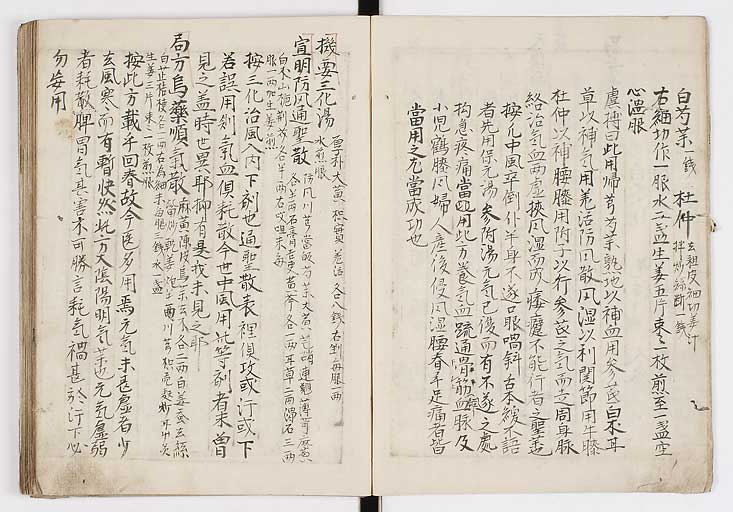 白芍薬一錢　杜仲去粗皮細切姜汁拌炒絲断一錢
右細切作一服水二盞生姜五片棗二枚煎至一盞空
心温服
虞摶曰此用帰芎芍薬熟地以補血用参芪白朮甘
草以補氣用羌活防風散風湿以利関節用牛膝
杜仲以補腰膝用附子以行参芪之氣而走周身脉
絡治氣血両虚挾風湿而成痿躄不能行者之聖薬
按凡中風卒倒半身不遂口眼喎斜舌本緩不語
者先用保元湯参附湯元氣已復而有不遂之處
拘急疼痛當用此方養氣血疏通骨筋血脉及
小児鶴膝風婦人産後侵風湿腰脊手足痛者皆
當用之尤當成功也
機要三化湯　厚朴大黄枳實羗活各八錢右剉毎服一両
水煎服
宣明防風通聖散　防風川芎當皈芍薬大黄芒硝連翹薄荷麻黄
各半両石膏桔更黄芩各一両甘草二両滑石三両
白朮山梔荊芥各半両右㕮咀末毎
服一両加生姜煎
按三化治風入内下剤也通聖散表裡倶攻或汗或下
若誤用則氣血倶耗散今世中風用此等剤者未曾
見之蓋時世異耶抑有是哉未見之耶
局方烏薬順氣散　麻黄陳皮烏薬去木各二両白姜蚕去絲
按此方載千回春故今医多用焉元氣未甚虚者少
去風寒而有暫快然此方大陰陽明氣薬元氣虚弱
者耗散脾胃氣其害不可勝言耗氣禍甚於汗下必
勿妄用